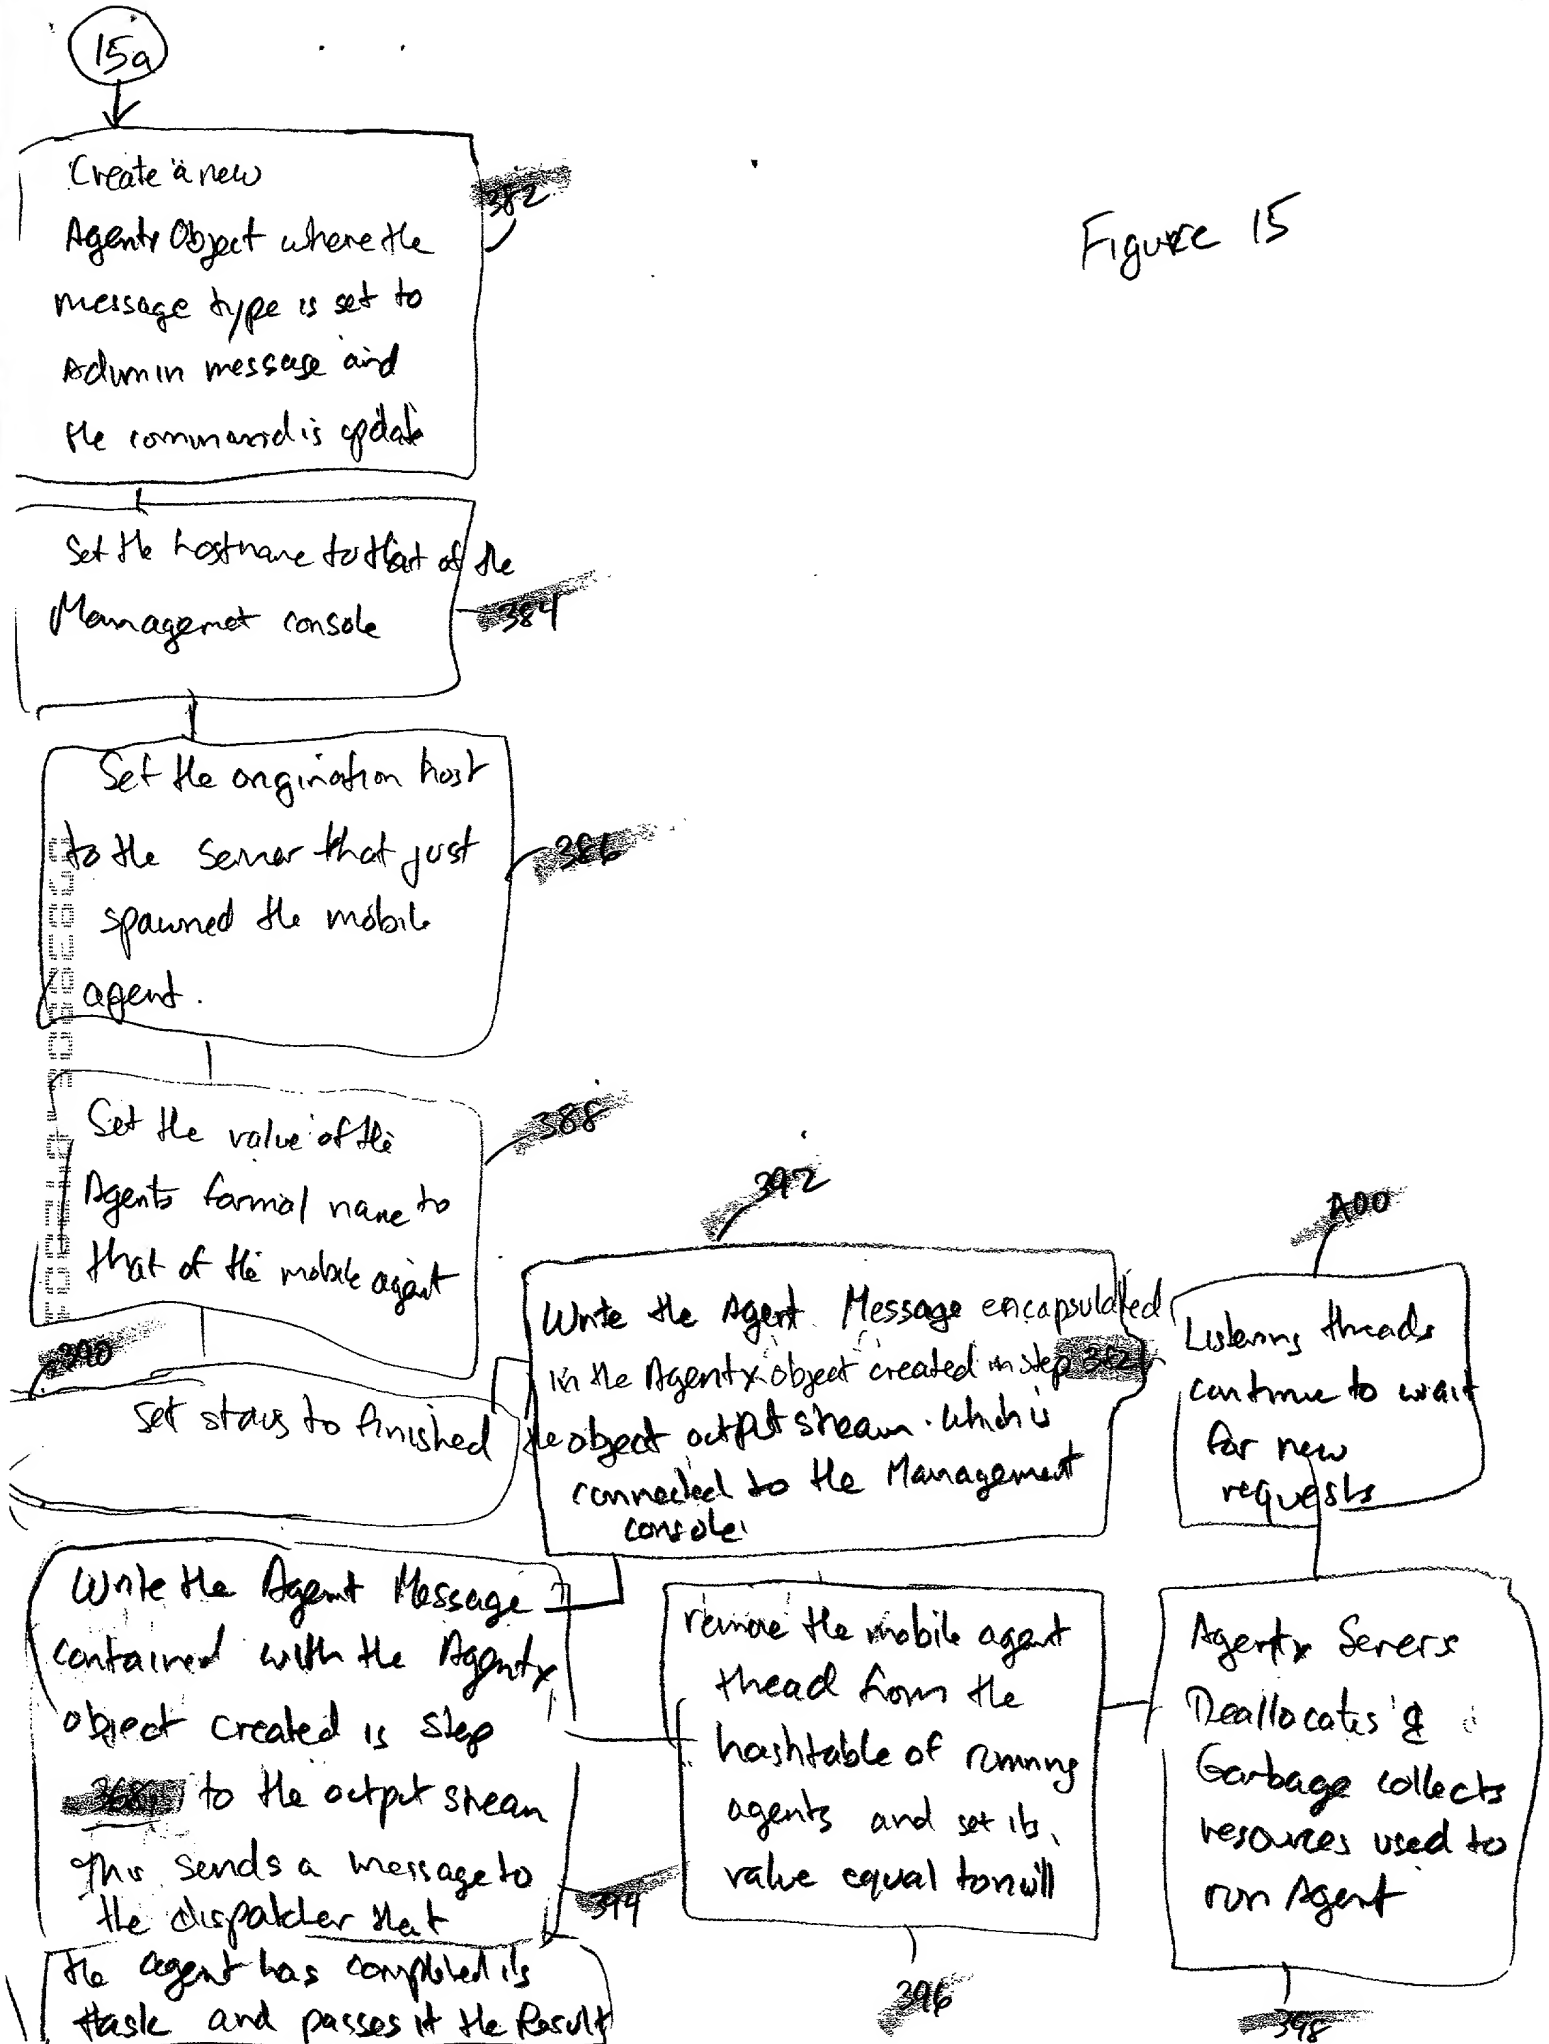 15a
Figure 15
Create a new
Agentx Object where the
message type is set to
Admin message and
the command is update
382
Set the hostname to that of the
Managemet console
384
Set the origination host
to the server that just
spawned the mobile
agent.
386
Set the value of the
Agents formal name to
that of the mobile agent
388
390
set staus to finished
392
Write the Agent Message encapsulated
in the Agentx object created in step 382
the object output stream. which is
connected to the Management
console.
Write the Agent Message
contained with the Agentx
object created is step
368 to the output stream
This sends a message to
the dispatcher that
the agent has completed its
task and passes it the Result
394
remove the mobile agent
thead from the
hashtable of running
agents and set its
value equal to null
396
Agentx Servers
Deallocates &
Garbage collects
resources used to
run Agent
398
A00
Listening threads
continue to wait
for new
requests